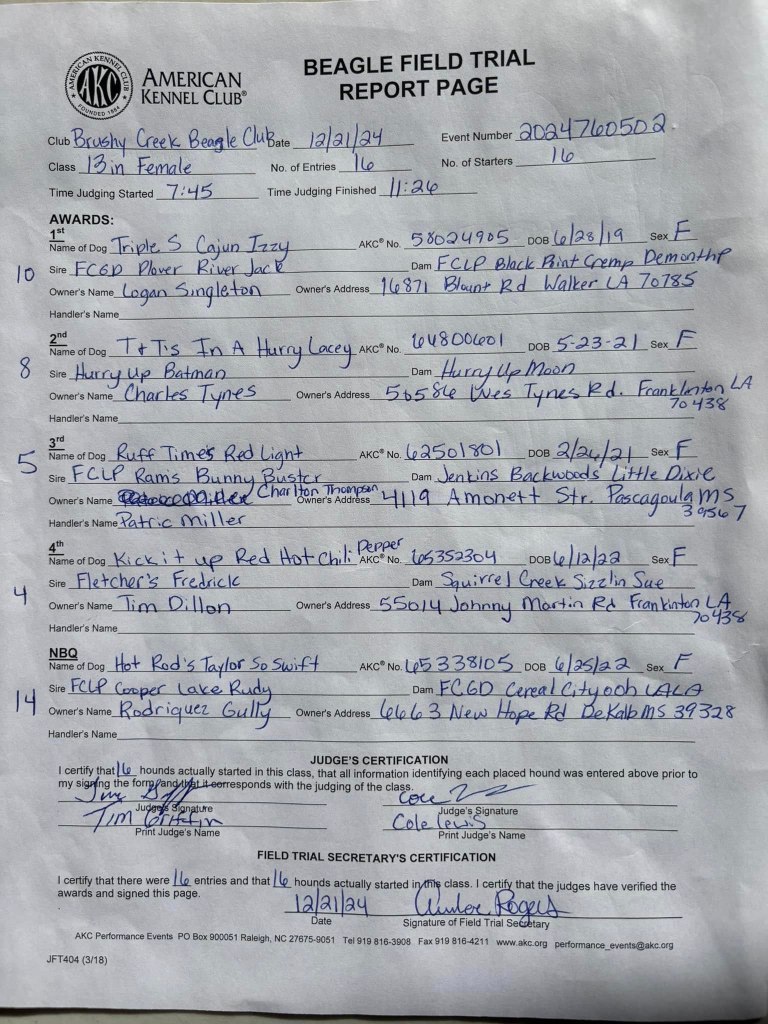 AMERICAN KENNEL CLUB
AKC
FOUNDED 1884
AMERICAN
KENNEL CLUB®
BEAGLE FIELD TRIAL
REPORT PAGE
Club Brushy Creek Beagle Club Date 12/21/24 Event Number 2024760502
Class 13 in Female No. of Entries 16 No. of Starters 16
Time Judging Started 7:45 Time Judging Finished 11:26
AWARDS:
1st
Name of Dog Triple S Cajun Izzy AKC® No. 58024905 DOB 6/28/19 Sex F
10 Sire FCGD Plover River Jack Dam FCLP Black Point Cremp Demonthp
Owner's Name Logan Singleton Owner's Address 16871 Blount Rd Walker LA 70785
Handler's Name
2nd
Name of Dog T & T's In A Hurry Lacey AKC® No. 64800601 DOB 5-23-21 Sex F
8 Sire Hurry Up Batman Dam Hurry Up Moon
Owner's Name Charles Tynes Owner's Address 56586 Wes Tynes Rd. Franklinton LA
70438
Handler's Name
3rd
Name of Dog Ruff Time's Red Light AKC® No. 62501801 DOB 2/24/21 Sex F
5 Sire FCLP Ram's Bunny Buster Dam Jenkins Backwoods Little Dixie
Owner's Name Charlton Thompson Owner's Address 4119 Amonett Str. Pascagoula MS
39567
Handler's Name Patric Miller
4th
Name of Dog Kick it up Red Hot Chili Pepper AKC® No. 65352304 DOB 6/12/22 Sex F
4 Sire Fletcher's Fredrick Dam Squirrel Creek Sizzlin Sue
Owner's Name Tim Dillon Owner's Address 55014 Johnny Martin Rd Frankinton LA
70438
Handler's Name
NBQ
Name of Dog Hot Rod's Taylor So Swift AKC® No. 65338105 DOB 6/25/22 Sex F
14 Sire FCLP Cooper Lake Rudy Dam FCGD Cereal City ooh LALA
Owner's Name Rodriquez Gully Owner's Address 6663 New Hope Rd DeKalb MS 39328
Handler's Name
JUDGE'S CERTIFICATION
I certify that 16 hounds actually started in this class, that all information identifying each placed hound was entered above prior to
my signing the form, and that it corresponds with the judging of the class.
Judge's Signature Judge's Signature
Tim Griffin Cole Lewis
Print Judge's Name Print Judge's Name
FIELD TRIAL SECRETARY'S CERTIFICATION
I certify that there were 16 entries and that 16 hounds actually started in this class. I certify that the judges have verified the
awards and signed this page.
12/21/24 Rogers
Date Signature of Field Trial Secretary
AKC Performance Events PO Box 900051 Raleigh, NC 27675-9051 Tel 919 816-3908 Fax 919 816-4211 www.akc.org performance_events@akc.org
JFT404 (3/18)